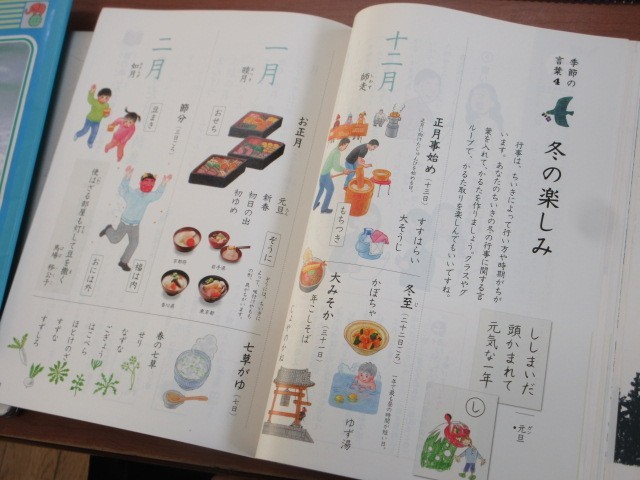 季節の
言葉4
冬の楽しみ
行事は、ちいきによって行い方や時期がちが
います。あなたのちいきの冬の行事に関する言
葉を入れて、かるたを作りましょう。クラスやグ
ループで、かるた取りを楽しんでもいいですね。
ししまいだ
頭かまれて
元気な一年
元旦
し
十二月
師走
正月事始め(十三日)
すすはらい
大そうじ
もちつき
冬至(二十二日ごろ)
一年で最も昼の時間が短い日。
かぼちゃ
ゆず湯
大みそか(三十一日)
年こしそば
じょやのかね
一月
睦月
お正月
おせち
元旦
新春
初日の出
初ゆめ
ぞうに
七草がゆ(七日)
春の七草
せり
なずな
ごぎょう
はこべら
ほとけのざ
すずな
すずしろ
二月
如月
節分
豆まき
福は内
おには外